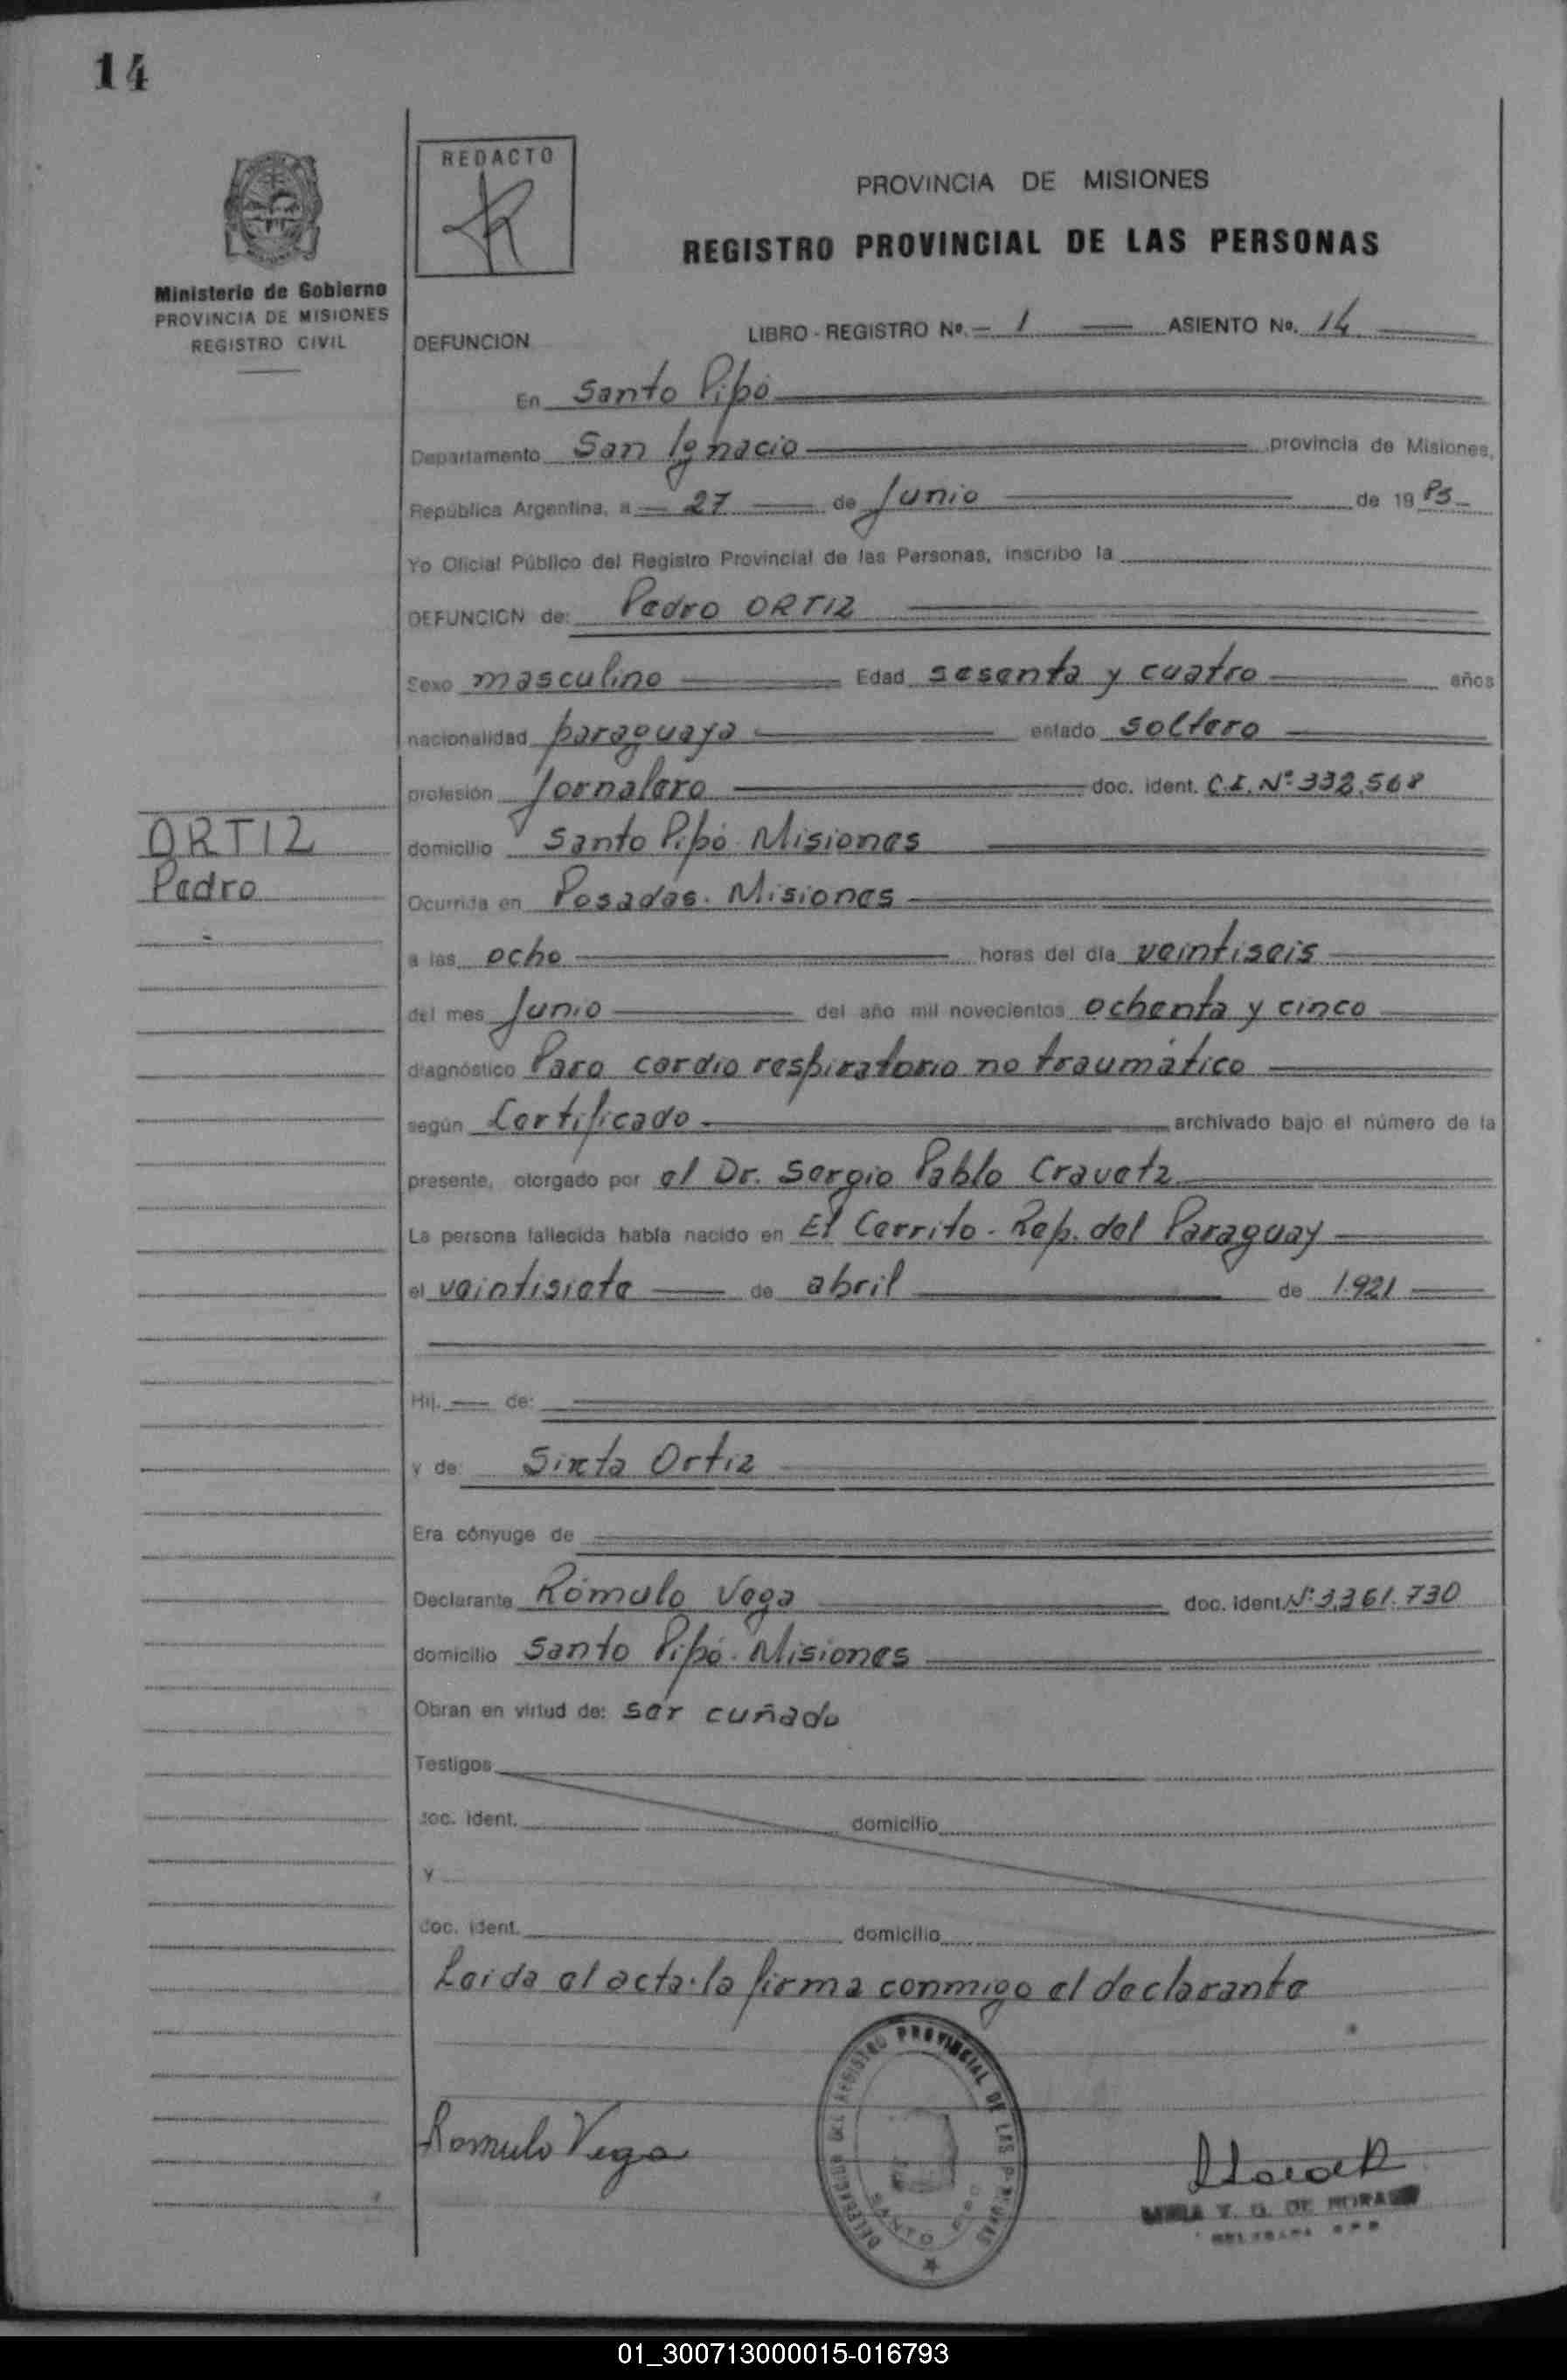 14
REDACTO
PROVINCIA DE MISIONES
REGISTRO PROVINCIAL DE LAS PERSONAS
Ministerio de Gobierno
PROVINCIA DE MISIONES
REGISTRO CIVIL
DEFUNCION
LIBRO - REGISTRO Nº. 1 ASIENTO Nº. 14
En Santo Pipó
Departamento San Ignacio provincia de Misiones,
República Argentina, a 27 de Junio de 1985
Yo Oficial Público del Registro Provincial de las Personas, inscribo la
DEFUNCION de: Pedro ORTIZ
Sexo masculino Edad sesenta y cuatro años
nacionalidad paraguaya estado soltero
profesión Jornalero doc. ident. C.I. Nº 332.568
ORTIZ
Pedro
domicilio Santo Pipó Misiones
Ocurrida en Posadas. Misiones
a las ocho horas del día veintiseis
del mes Junio del año mil novecientos ochenta y cinco
diagnóstico Paro cardio respiratorio no traumático
según Certificado archivado bajo el número de la
presente, otorgado por el Dr. Sergio Pablo Cravetz
La persona fallecida había nacido en El Cerrito - Rep. del Paraguay
el veintisiete de abril de 1921
Hij. de:
y de: Sixta Ortiz
Era cónyuge de
Declarante Rómulo Vega doc. ident. Nº 3.361.730
domicilio Santo Pipó - Misiones
Obran en virtud de: ser cuñado
Testigos
doc. ident. domicilio
y
doc. ident. domicilio
Leida el acta. la firma conmigo el declarante
DELEGACION DEL REGISTRO PROVINCIAL DE LAS PERSONAS
SANTO PIPO
Romulo Vega
Y. G. DE MORA
01_300713000015-016793